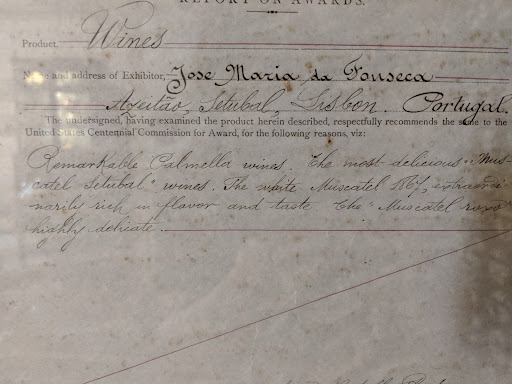 REPORT ON AWARDS.
Product, Wines
Name and address of Exhibitor, Jose Maria da Fonseca
Azeitão, Setubal, Lisbon. Portugal.
The undersigned, having examined the product herein described, respectfully recommends the same to the
United States Centennial Commission for Award, for the following reasons, viz:
Remarkable Calmella wines. The most delicious "Mus-
catel Setubal" wines. The white Muscatel 1867, extraordi-
narily rich in flavor and taste. The "Muscatel roxo"
highly delicate.